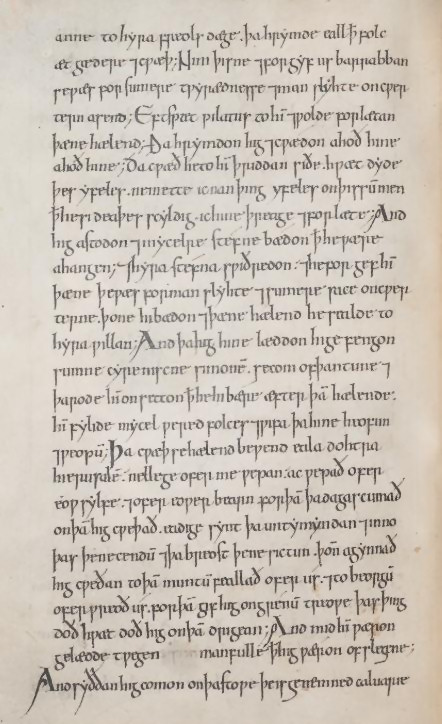 anne to hyra freols dæge. þa hrymde eall ꝥ folc
æt gædere ⁊ cƿæþ; Nim þisne ⁊ forgyf us barrabban
se ƿæs for sumere tƿyrædnesse ⁊ man slyhte on cƿer
tern aƿend; Eft spæc pilatus to hī ⁊ ƿolde forlætan
þæne hælend; Ða hrymdon hig ⁊ cƿædon ahoð hine
ahoð hine; Ða cƿæð he to hī þriddan siðe. hƿæt dyde
þes yfeles. ne mette ic nan þing yfeles on þissū men
ꝥ he si deaþes scyldig. ic hine þreage ⁊ forlæte; And
hig astodon ⁊ mycelre stefne bædon ꝥ he ƿære
ahangen; ⁊ hyra stefna sƿiðredon. ⁊ he forgef hī
þæne þe ƿæs for man slyhte ⁊ sumere sace on cƿer
terne. þone hi bædon ⁊ þæne hælend he sealde to
hyra ƿillan; And þa hig hine læddon hi gefengon
sumne cyreniscne simonē. se com of þan tune ⁊
þa rode hī on setton ꝥ he hi bære æfter þā hælende.
hī fylide mycel ƿered folces ⁊ ƿifa þa hine heofun
⁊ ƿeopū; Ða cƿæþ se hælend beƿend eala dohtra
hierusalē. nellege ofer me ƿepan. ac ƿepað ofer
eoƿ sylfe. ⁊ ofer eoƿer bearn forþā þa dagas cumað
on þā hig cƿeþað. eadige synt þa untymyndan ⁊ inno
þas þe ne cendū ⁊ þa breost þe ne sictun. þoñ agynnað
hig cƿeðan to þā muntū feallað ofer us. ⁊ to beorgū
ofer ƿreoð us. forþā gif hig on grenum treoƿe þas þing
doð hƿæt doð hig on þā drigean; And mid hī ƿæron
gelædde tƿegen manfulle ꝥ hig ƿæron ofslegene;
And syððan hig comon on þa stoƿe þe is genemned caluarie